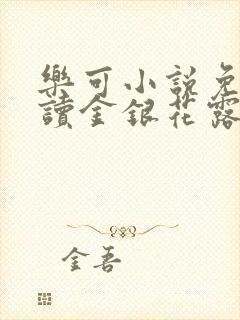 樂可小說免
讀金銀花露
金吾